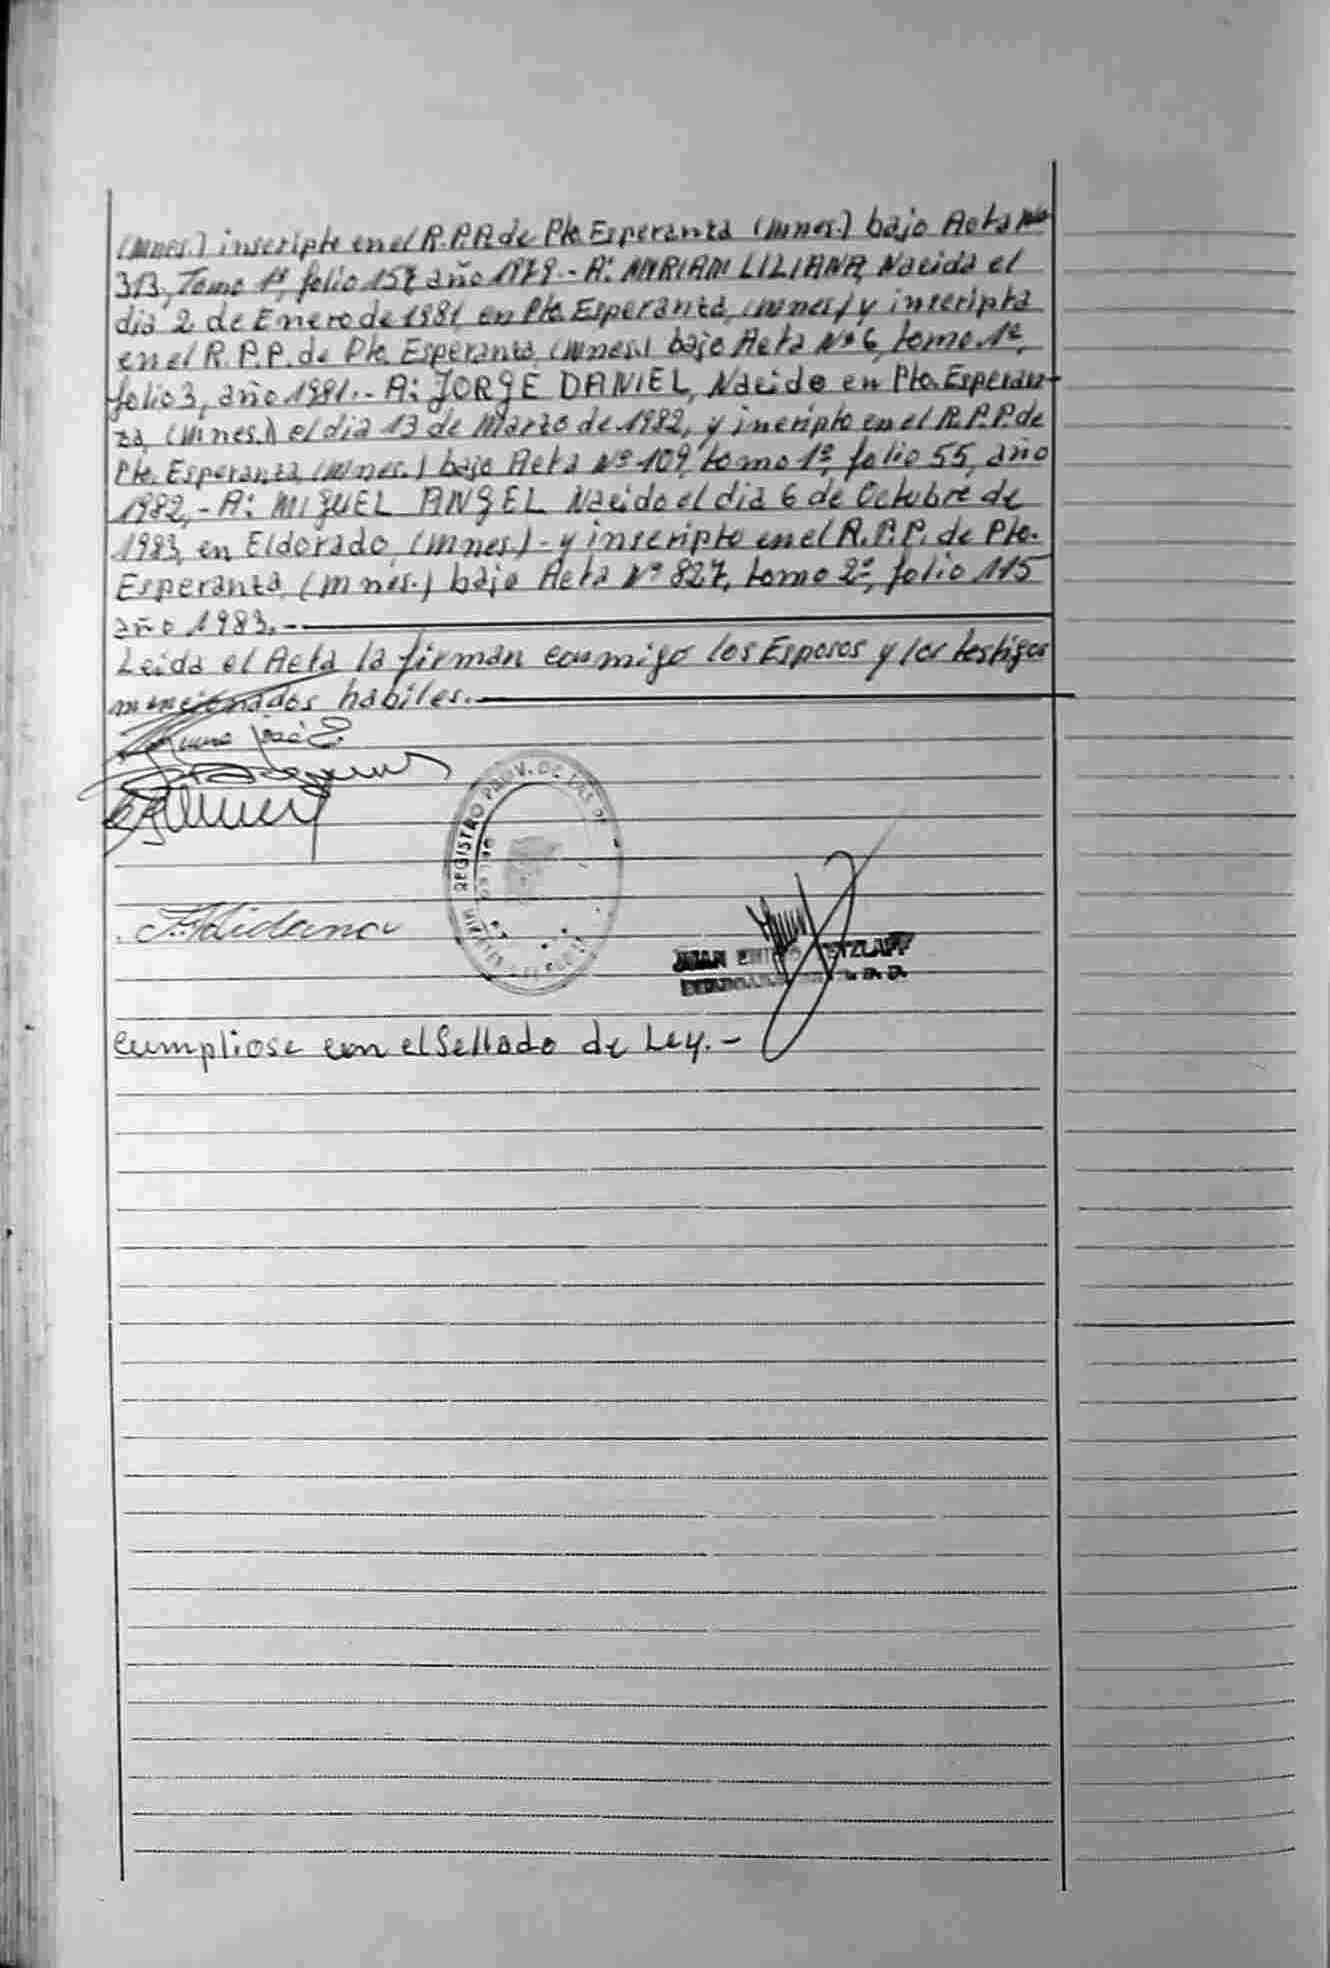 (mnes.) inscripto en el R.P.P. de Pto. Esperanza (mnes.) bajo Acta Nº
313, Tomo 1º, folio 157 año 1979.- A: MYRIAM LILIANA, Nacida el
dia 2 de Enero de 1981, en Pto. Esperanza, (mnes) y inscripta
en el R.P.P. de Pto. Esperanza (mnes.) bajo Acta Nº 6, tomo 1º,
folio 3, año 1981.- A: JORGE DANIEL, Nacido en Pto. Esperan-
za, (mnes.) el dia 13 de Marzo de 1982, y incripto en el R.P.P. de
Pto. Esperanza (mnes.) bajo Acta Nº 109, tomo 1º, folio 55, año
1982.- A: MIGUEL ANGEL Nacido el dia 6 de Octubre de
1983, en Eldorado (mnes.) - y inscripto en el R.P.P. de Pto.
Esperanza (mnes.) bajo Acta Nº 827, tomo 2º, folio 115
año 1983.-
Leida el Acta la firman conmigo los Esposos y los testigos
mencionados habiles.-
José E
REGISTRO PROV. DE LAS
JUAN
Cumpliose con el Sellado de Ley.-